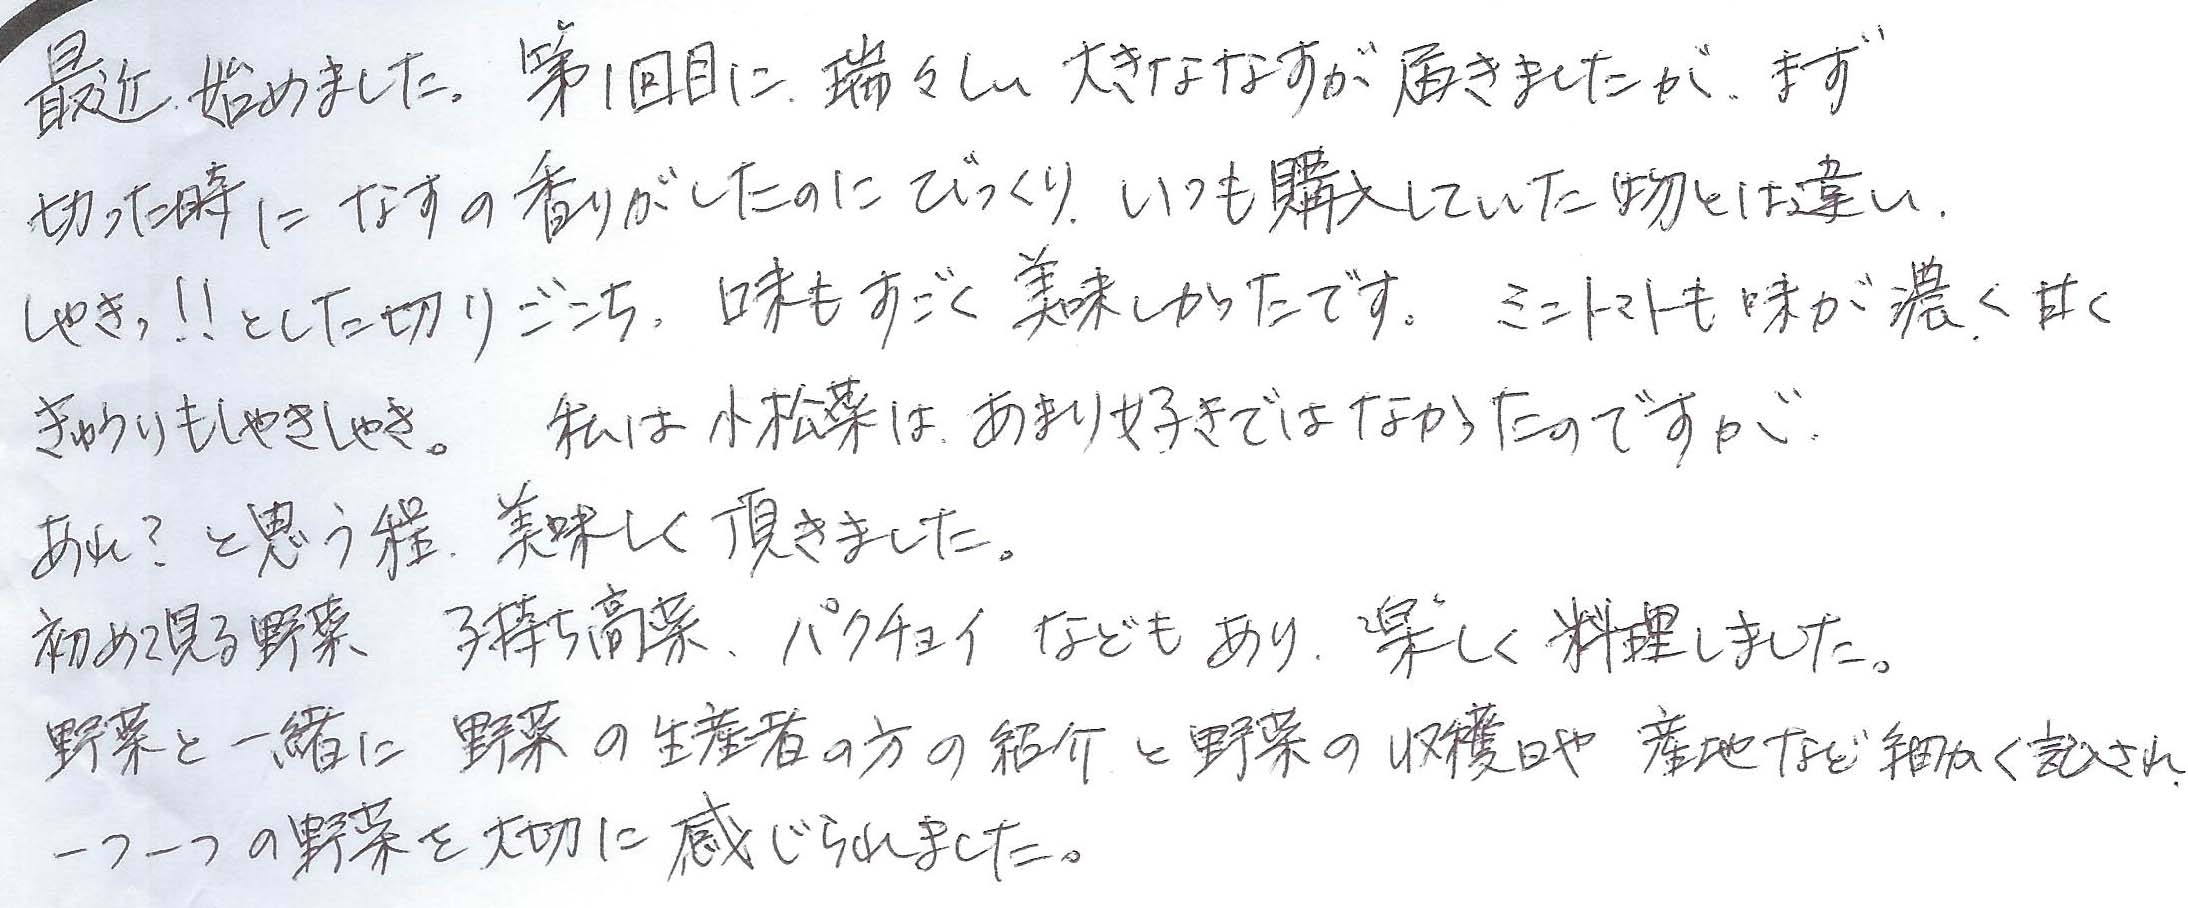 最近、始めました。第1回目に、瑞々しい大きななすが届きましたが、まず
切った時になすの香りがしたのにびっくり、いつも購入していた物とは違い、
しゃきっ!!とした切りごこち、味もすごく美味しかったです。ミニトマトも味が濃く甘く
きゅうりもしゃきしゃき。私は小松菜は、あまり好きではなかったのですが、
あれ?と思う程、美味しく頂きました。
初めて見る野菜、子持ち高菜、パクチョイなどもあり、楽しく料理しました。
野菜と一緒に野菜の生産者の方の紹介と野菜の収穫日や産地など細かく記され、
一つ一つの野菜を大切に感じられました。